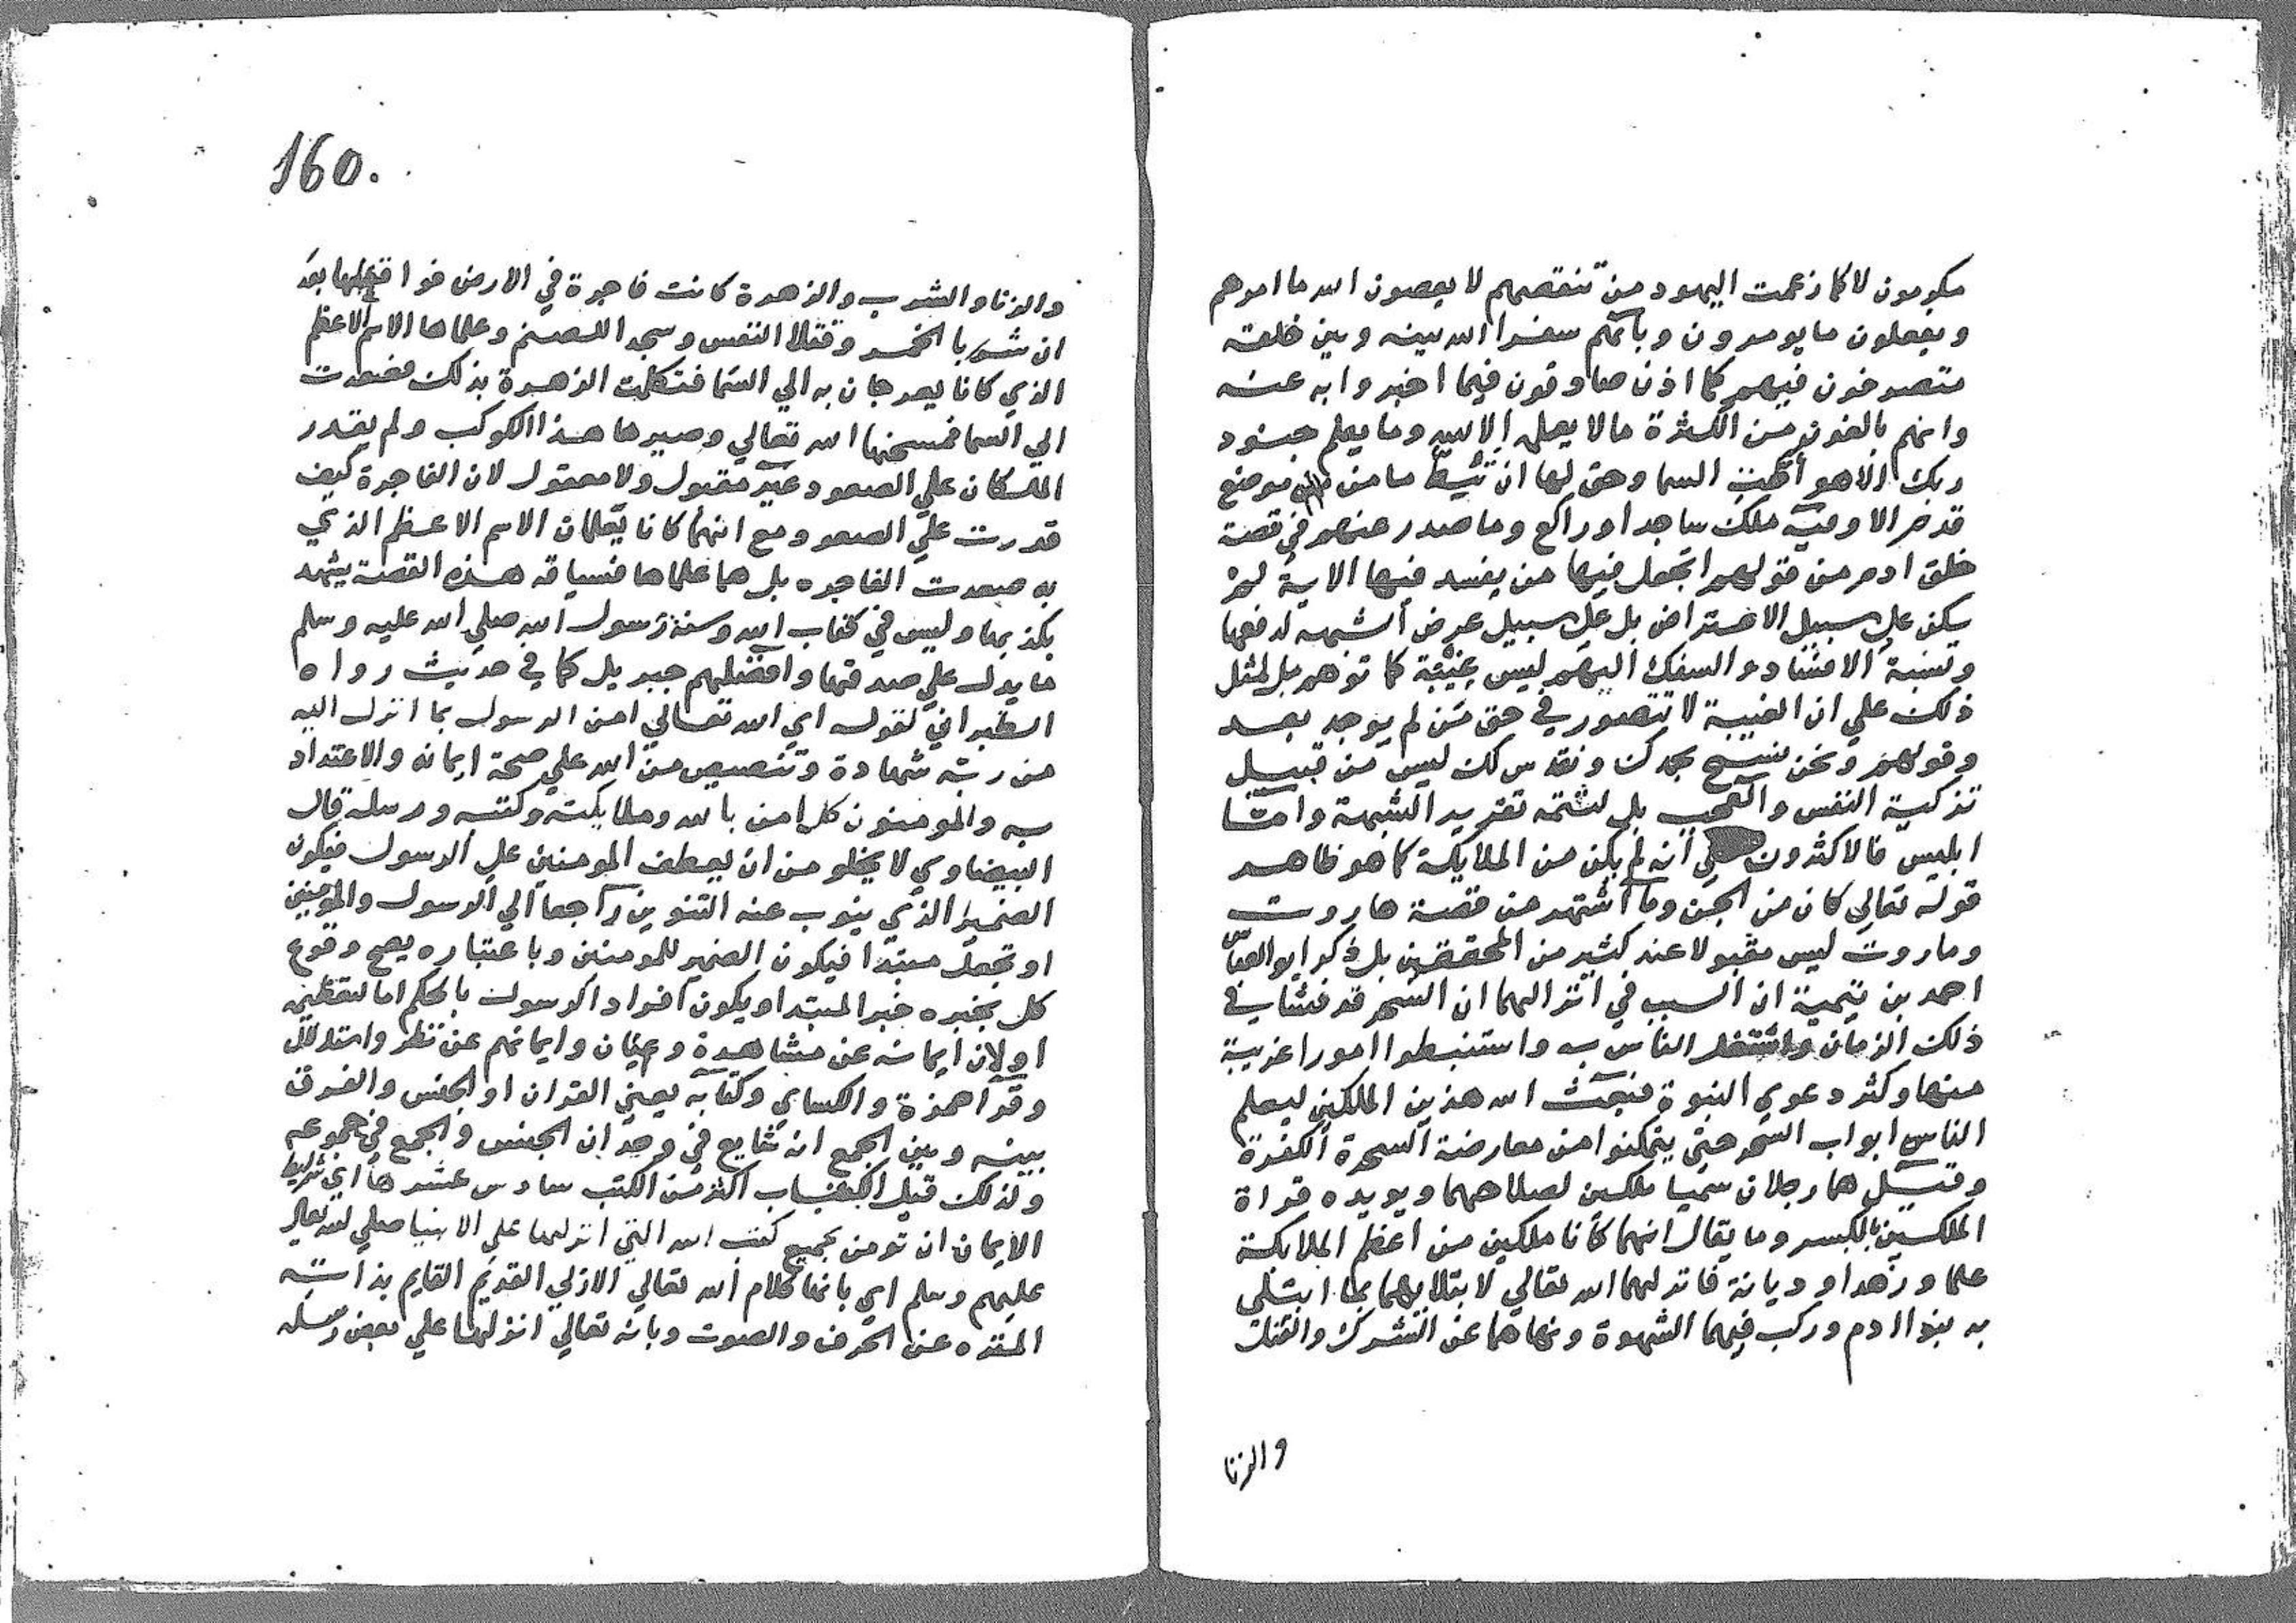 مكرمون لا كما زعمت اليهود من تنقصهم لا يعصون الله ما امرهم
ويفعلون ما يومرون وبانهم سفرا الله بينه وبين خلقه
متصرفون فيهم كما اذن صادقون فيما اخبروا به عنه
وانهم بالغون من الكثرة ما لا يعلمه الا الله وما يعلم جنود
ربك الا هو أطت السما وحق لها ان تئط ما من موضع
قدم الا وفيه ملك ساجد او راكع وما صدر عنهم في قصة
خلق ادم من قولهم اتجعل فيها من يفسد فيها الاية لم
يكن علي سبيل الاعتراض بل علي سبيل عرض الشبهه لدفعها
ونسبة الافساد والسفك اليهم ليس غيبة كما توهم بل لمثل
ذلك علي ان الغيبة لا تتصور في حق من لم يوجد بعد
وقولهم ونحن نسبح بحمدك ونقدس لك ليس من قبيل
تزكية النفس والعجب بل لتتمة تقرير الشبهة واما
ابليس فالاكثرون علي أنه لم يكن من الملايكة كما هو ظاهر
قوله تعالي كان من الجن وما اشتهر من قصة هاروت
وماروت ليس مقبولا عند كثير من المحققين بل ذكر ابو العباس
احمد بن تيمية ان السبب في انزالهما ان السحر قد فشا في
ذلك الزمان واشتغل الناس به واستنبطوا امورا غريبة
منها وكثر دعوي النبوة فبعث الله هذين الملكين ليعلما
الناس ابواب السحر حتي يتمكنوا من معارضة السحرة الكفرة
وقيل هما رجلان سميا ملكين لصلاحهما ويويده قراة
الملكين بالكسر وما يقال انهما كانا ملكين من اعظم الملايكة
علما وزهدا وديانة فانزلهما الله تعالي لابتلايهما بما ابتلي
به بنوا ادم وركب فيهما الشهوة ونهاهما عن الشرك والقتل
والزنا
160.
والزنا والشرب والزهرة كانت فاجرة في الارض فواقعاها بعد
ان شربا الخمر وقتلا النفس وسجدا للصنم وعلماها الاسم الاعظم
الذي كانا يعرجان به الي السما فتكلمت الزهرة بذلك فصعدت
الي السما فمسخها الله تعالي وصيرها هذا الكوكب ولم يقدر
الملكان علي الصعود غير مقبول ولا معقول لان الفاجرة كيف
قدرت علي الصعود مع انهما كانا يعلمان الاسم الاعظم الذي
به صعدت الفاجره بل هما علماها فسياقه هذه القصة يشهد
بكذبها وليس في كتاب الله وسنة رسول الله صلي الله عليه وسلم
ما يدل علي صدقها وافضلهم جبريل كما في حديث رواه
الطبراني لقوله اي الله تعالي امن الرسول بما انزل اليه
من ربه شهادة وتنصيص من الله علي صحة ايمانه والاعتداد
به والمومنون كل امن بالله وملايكته وكتبه ورسله قال
البيضاوي لا يخلو من ان يعطف المومنين علي الرسول فيكون
الضمير الذي ينوب عنه التنوين راجعا الي الرسول والمومنين
او تجعل مبتدا فيكون الضمير للمومنين وباعتباره يصح وقوع
كل بخبره خبر المبتدا ويكون افراد الرسول بالحكم اما لتعظيمه
او لان ايمانه عن مشاهدة وعيان وايمانهم عن نظر واستدلال
وقرا حمزة والكساي وكتابه يعني القران او الجنس والفرق
بينه وبين الجمع انه شايع في وحدان الجنس والجمع في جموعه
ولذلك قيل الكتاب اكثر من الكتب سادس عشرها اي شرايط
الايمان ان تومن بجميع كتب الله التي انزلها علي الانبيا صلي الله تعالي
عليهم وسلم اي بانها كلام الله تعالي الازلي القديم القايم بذاته
المنزه عن الحرف والصوت وبانه تعالي انزلها علي بعض رسله